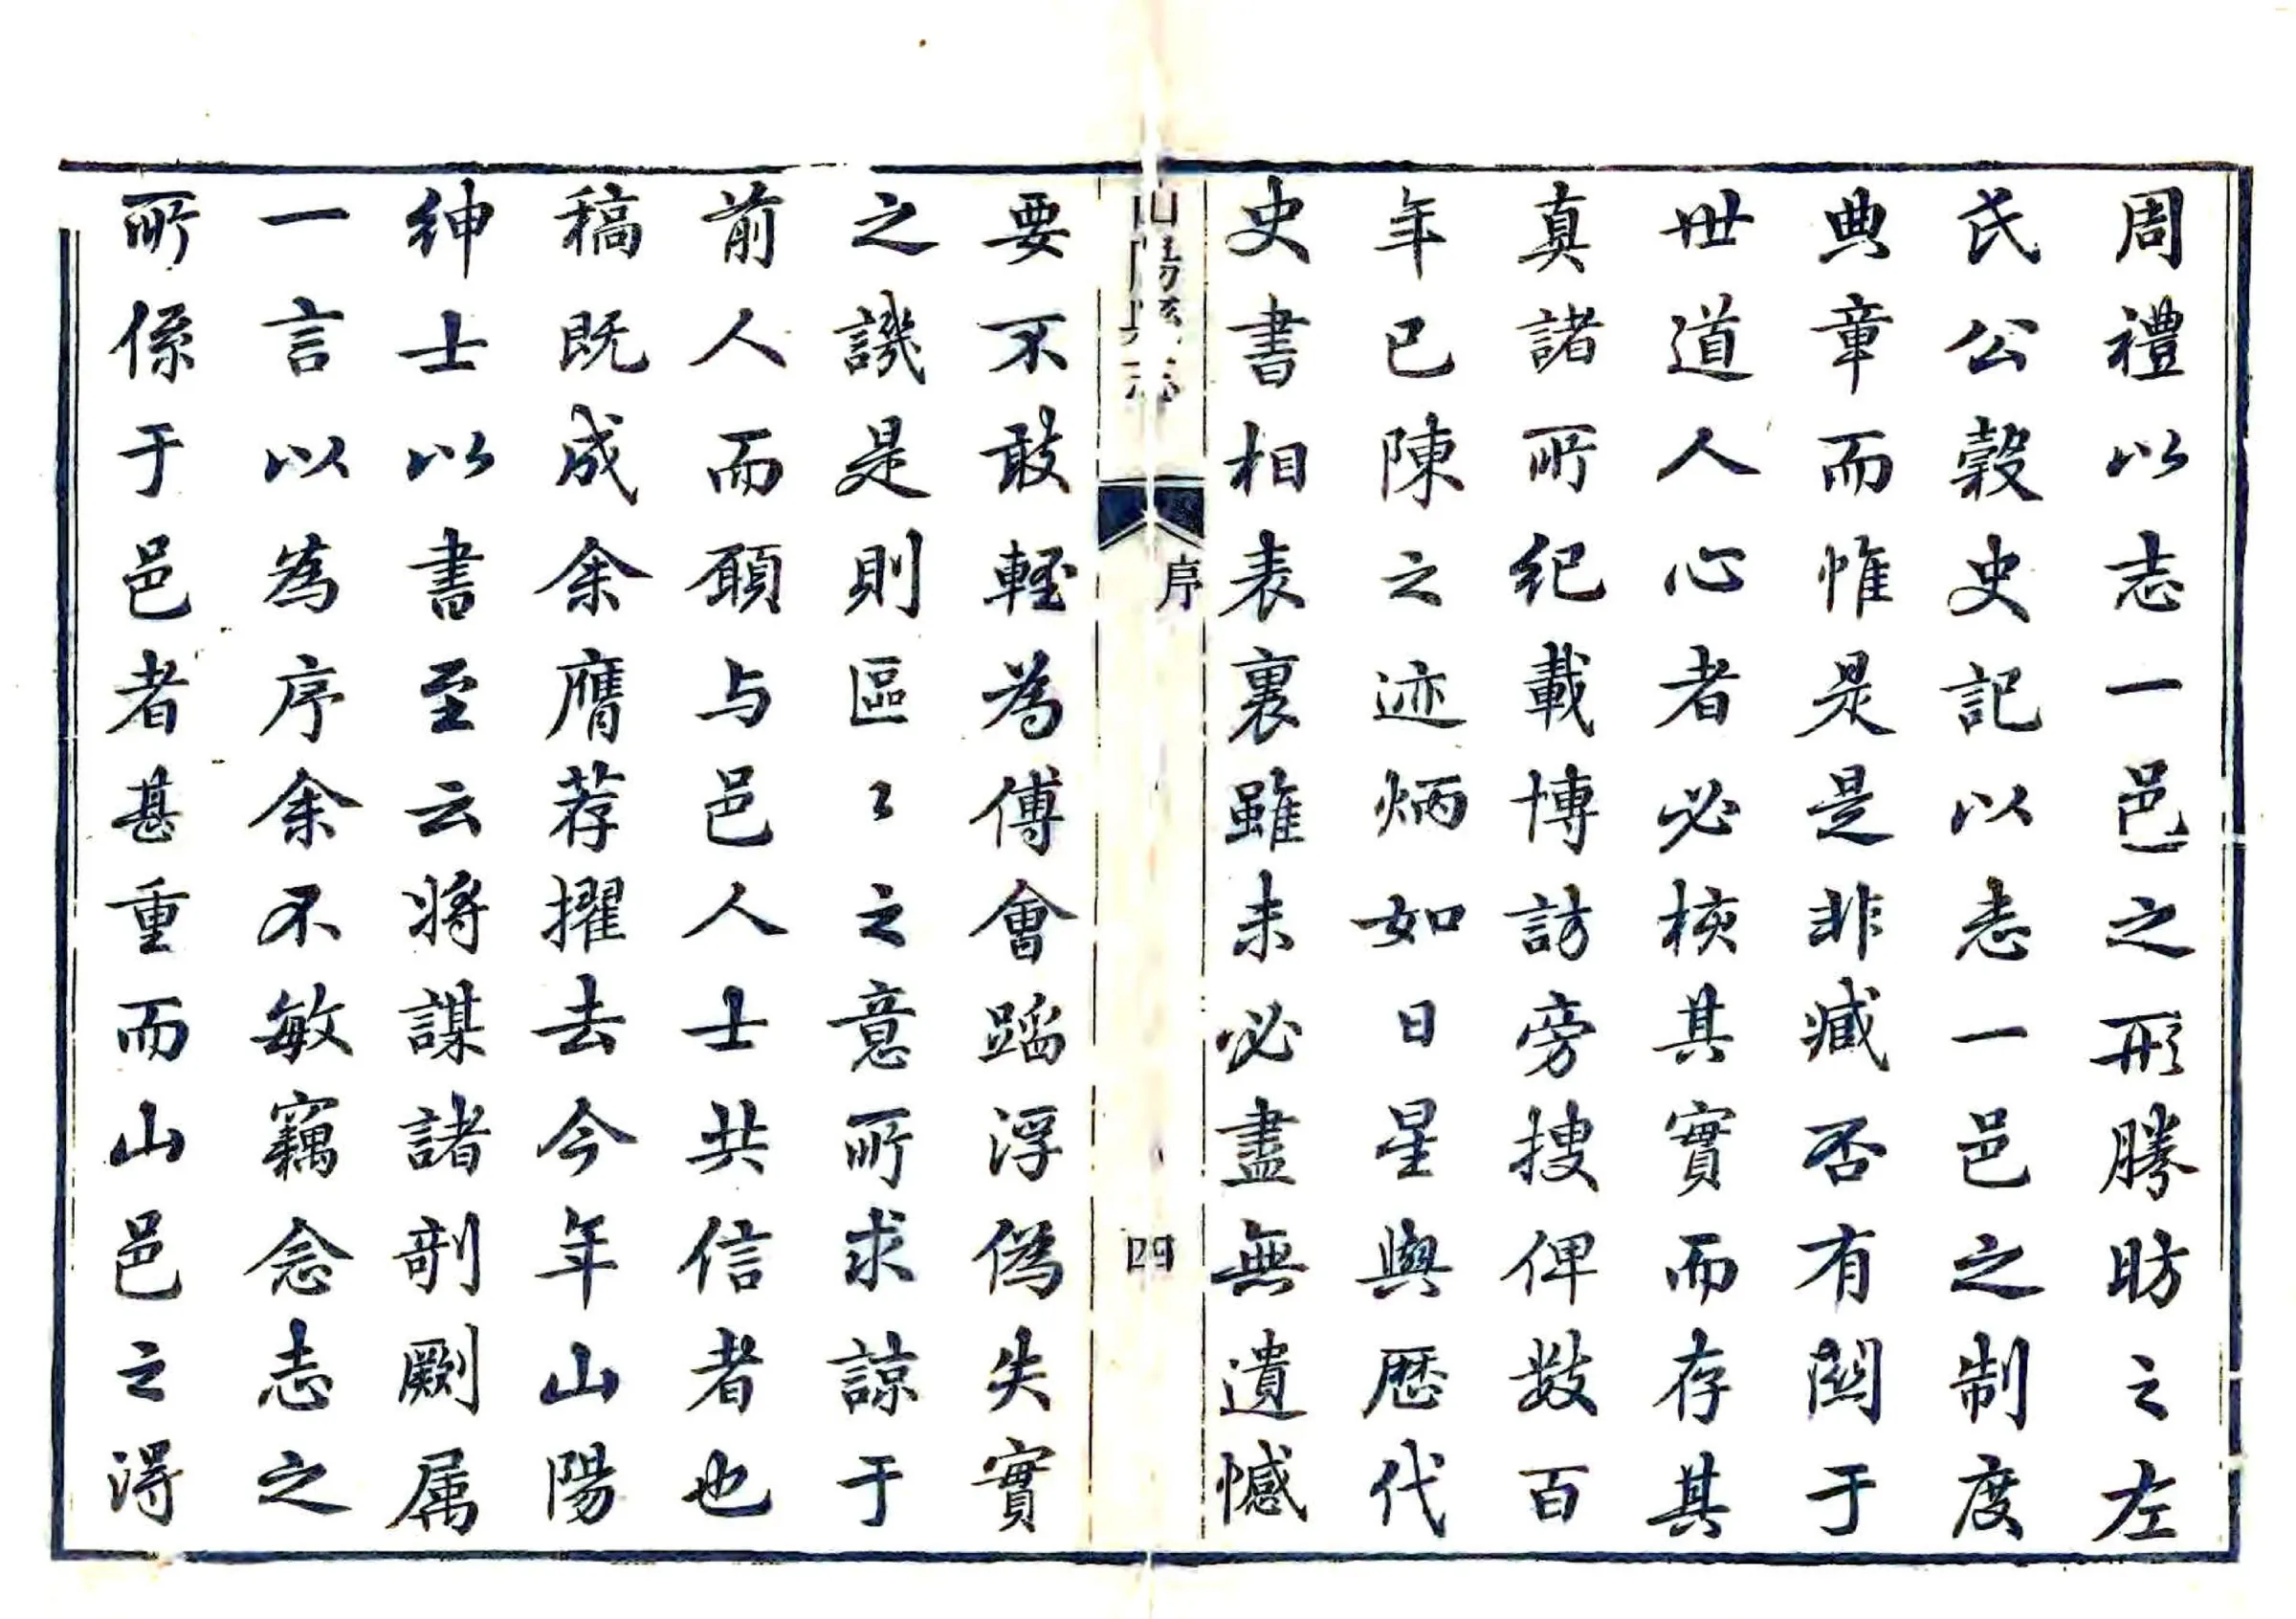 周禮以志一邑之形勝昉之左
氏公穀史記以志一邑之制度
典章而惟是是非臧否有關于
世道人心者必核其實而存其
真諸所紀載博訪旁搜俾数百
年已陳之迹炳如日星與歷代
史書相表裏雖未必盡無遺憾
山陽縣志
序
四
要不敢輕為傅會蹈浮偽失實
之譏是則區〻之意所求諒于
前人而願与邑人士共信者也
稿既成余膺荐擢去今年山陽
紳士以書至云将謀諸剞劂属
一言以為序余不敏竊念志之
所係于邑者甚重而山邑之淂